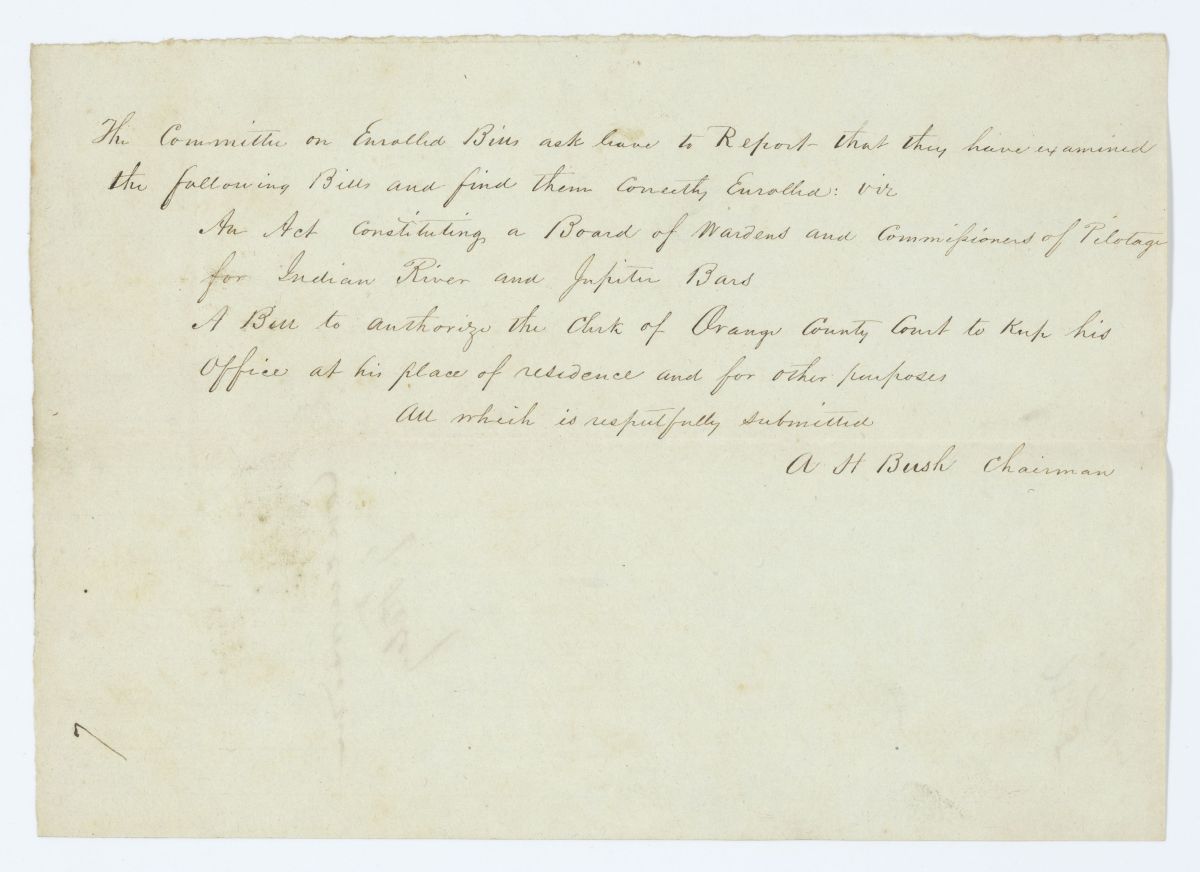 The Committee on Enrolled Bills ask leave to Report that they have examined
the following Bills and find them Correctly Enrolled: viz
An Act Constituting a Board of Wardens and Commissioners of Pilotage
for Indian River and Jupiter Bars
A Bill to authorize the Clerk of Orange County Court to Keep his
Office at his place of residence and for other purposes
All which is respectfully submitted
A H Bush Chairman